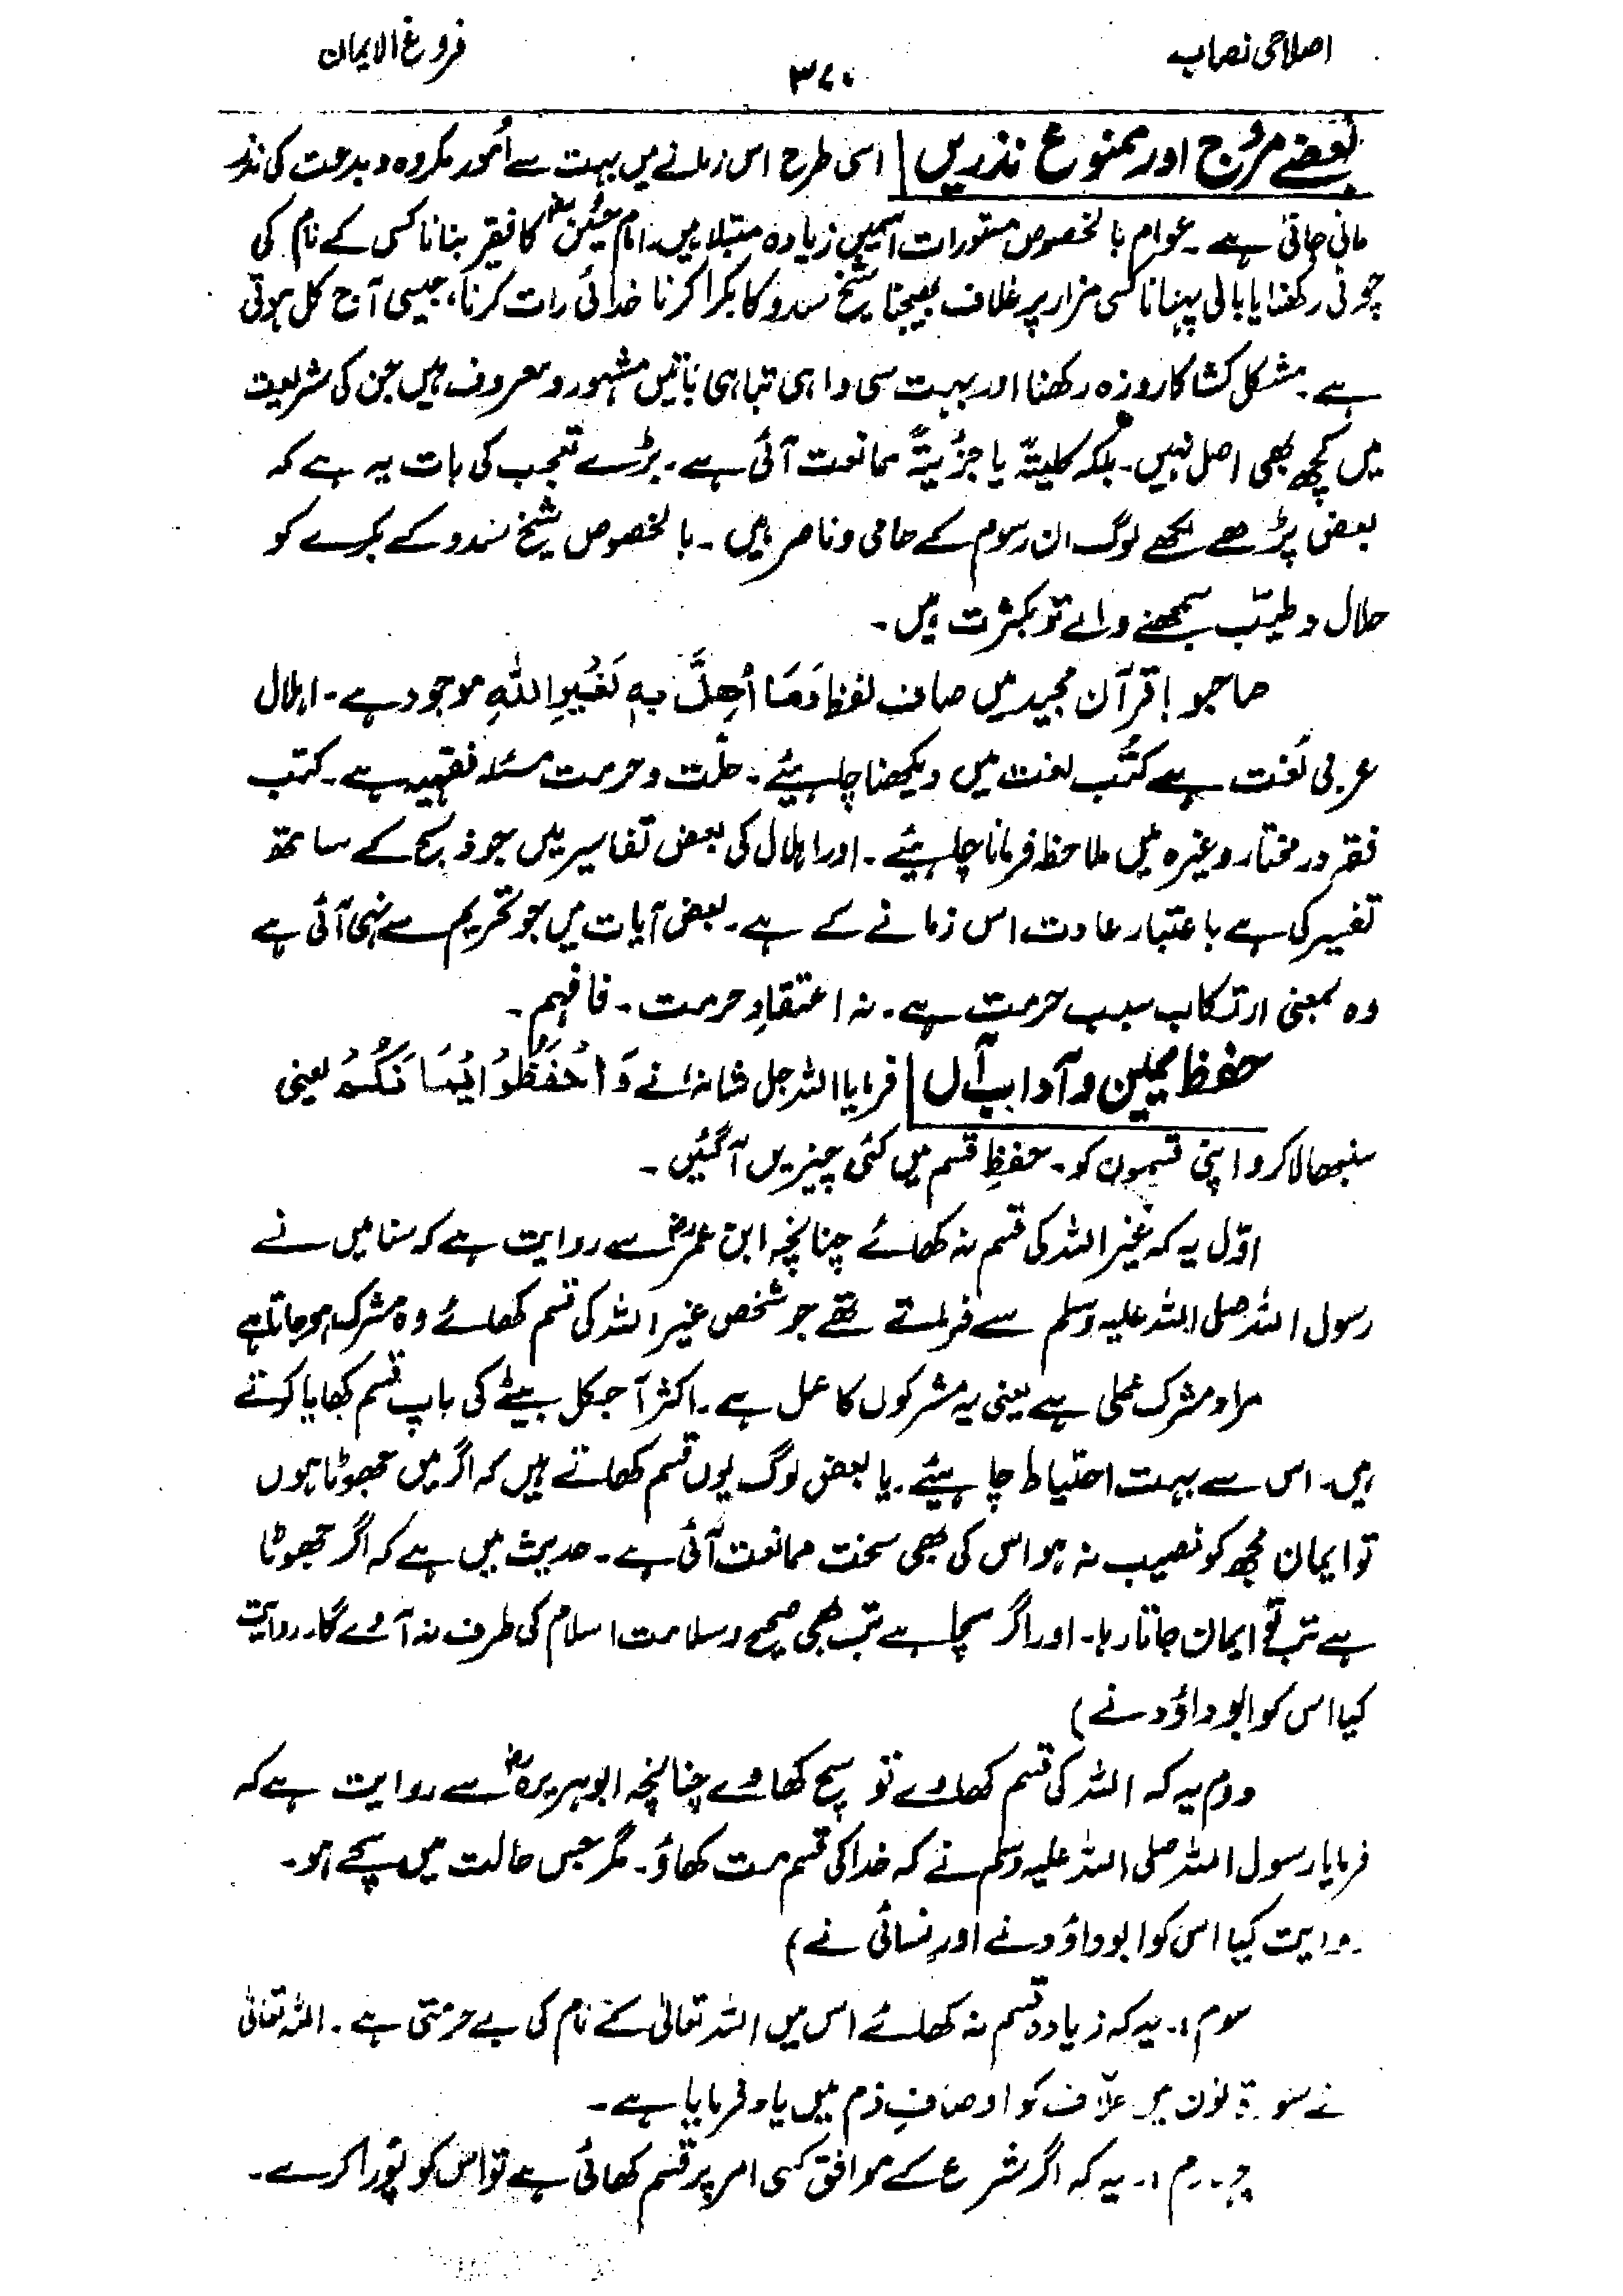 اصلاحی نصاب
۳۷۰
فروغ الایمان
بعضے مروّج اور ممنوع نذریں | اسی طرح اس زمانے میں بہت سے اُمور مکروہ و بدعت کی نذر
مانی جاتی ہے۔ عوام بالخصوص مستورات اسمیں زیادہ مبتلا ہیں۔ امام حسینؓ کا فقیر بنانا کسی کے نام کی
چوٹی رکھنا یا بالی پہنانا کسی مزار پر غلاف بھیجنا شیخ سدو کا بکرا کرنا خدائی رات کرنا، جیسی آج کل ہوتی
ہے۔ مشکل کشا کا روزہ رکھنا اور بہت سی واہی تباہی باتیں مشہور و معروف ہیں جن کی شریعت
میں کچھ بھی اصل نہیں۔ بلکہ کلیتہً یا جزئیتہً ممانعت آئی ہے۔ بڑے تعجب کی بات یہ ہے کہ
بعض پڑھے لکھے لوگ ان رسوم کے حامی و ناصر ہیں۔ بالخصوص شیخ سدو کے بکرے کو
حلال و طیّب سمجھنے والے تو بکثرت ہیں۔
صاحبو! قرآن مجید میں صاف لفظ وَمَا اُهِلَّ بِهٖ لِغَيْرِ اللهِ موجود ہے۔ اہلال
عربی لُغت ہے کُتُب لغت میں دیکھنا چاہیئے۔ حلّت و حرمت مسئلہ فقہیہ ہے۔ کتب
فقہ در مختار وغیرہ میں ملاحظہ فرمانا چاہیئے۔ اور اہلال کی بعض تفاسیر میں جو ذبح کے ساتھ
تفسیر کی ہے باعتبار عادت اس زمانے کے ہے۔ بعض آیات میں جو تحریم سے نہی آئی ہے
وہ بمعنی ارتکاب سبب حرمت ہے۔ نہ اعتقادِ حرمت۔ فافہم۔
حفظ یمین و آداب آں | فرمایا اللہ جل شانہ نے وَاحْفَظُوْا اَيْمَانَكُمْ یعنی
سنبھالا کرو اپنی قسموں کو۔ حفظِ قسم میں کئی چیزیں آگئیں۔
اوّل یہ کہ غیر اللہ کی قسم نہ کھائے چنانچہ ابن عمرؓ سے روایت ہے کہ سنا میں نے
رسول اللہ صلی اللہ علیہ وسلم سے فرماتے تھے جو شخص غیر اللہ کی قسم کھائے وہ مشرک ہو جاتا ہے
مراد مشرک عملی ہے یعنی یہ مشرکوں کا عمل ہے۔ اکثر آجکل بیٹے کی باپ قسم کھایا کرتے
ہیں۔ اس سے بہت احتیاط چاہیئے۔ یا بعض لوگ یوں قسم کھاتے ہیں کہ اگر میں جھوٹا ہوں
تو ایمان مجھ کو نصیب نہ ہو اس کی بھی سخت ممانعت آئی ہے۔ حدیث میں ہے کہ اگر جھوٹا
ہے تب تو ایمان جاتا رہا۔ اور اگر سچا ہے تب بھی صحیح و سلامت اسلام کی طرف نہ آوے گا۔ روایت
کیا اس کو ابو داؤد نے)
دوم یہ کہ اللہ کی قسم کھاوے تو سچ کھاوے چنانچہ ابو ہریرہؓ سے روایت ہے کہ
فرمایا رسول اللہ صلی اللہ علیہ وسلم نے کہ خدا کی قسم مت کھاؤ۔ مگر جس حالت میں سچے ہو۔
روایت کیا اس کو ابو داؤد نے اور نسائی نے)
سوم :۔ یہ کہ زیادہ قسم نہ کھائے اس میں اللہ تعالیٰ کے نام کی بے حرمتی ہے۔ اللہ تعالیٰ
نے سورۃ نون میں حلّاف کو اوصافِ ذم میں یاد فرمایا ہے۔
چہارم :۔ یہ کہ اگر شرع کے موافق کسی امر پر قسم کھائی ہے تو اس کو پُورا کرے۔